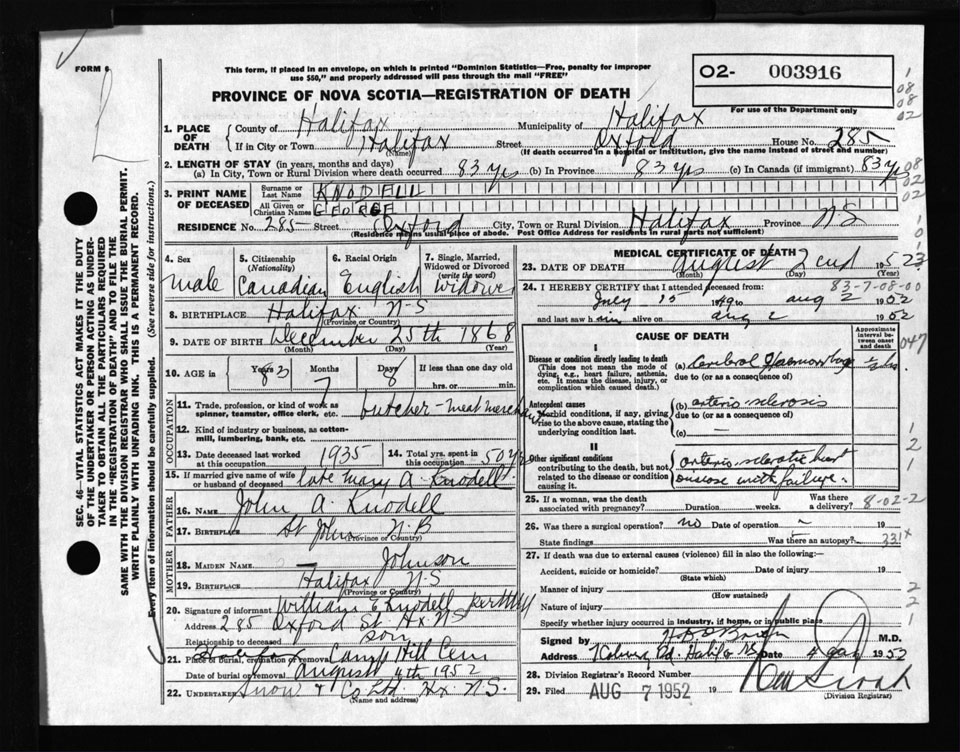 FORM 6
This form, if placed in an envelope, on which is printed "Dominion Statistics—Free, penalty for improper
use $50," and properly addressed will pass through the mail "FREE"
O2- 003916
For use of the Department only
PROVINCE OF NOVA SCOTIA—REGISTRATION OF DEATH
1. PLACE OF DEATH
County of Halifax Municipality of Halifax
If in City or Town Halifax Street Oxford House No. 285
(Name) (If death occurred in a hospital or institution, give the name instead of street and number)
2. LENGTH OF STAY (in years, months and days)
(a) In City, Town or Rural Division where death occurred 83 yrs (b) In Province 83 yrs (c) In Canada (if immigrant) 83 yrs
3. PRINT NAME OF DECEASED
Surname or Last Name KNODELL
All Given or Christian Names GEORGE
RESIDENCE No. 285 Street Oxford City, Town or Rural Division Halifax Province N.S
(Residence means usual place of abode. Post Office Address for residents in rural parts not sufficient)
4. Sex 5. Citizenship (Nationality) 6. Racial Origin 7. Single, Married, Widowed or Divorced (write the word)
male Canadian English widower
8. BIRTHPLACE Halifax N-S
(Province or Country)
9. DATE OF BIRTH December 25th 1868
(Month) (Day) (Year)
10. AGE in Years 83 Months 7 Days 8 If less than one day old
hrs. or min.
OCCUPATION
11. Trade, profession or kind of work as
spinner, teamster, office clerk, etc. butcher - meat
12. Kind of industry or business, as cotton-
mill, lumbering, bank, etc.
13. Date deceased last worked
at this occupation 1935
14. Total yrs. spent in
this occupation 50 yrs
15. If married give name of wife
or husband of deceased late Mary A. Knodell
FATHER
16. Name John A. Knodell
17. Birthplace St John N.B
(Province or Country)
MOTHER
18. Maiden Name — Johnson
19. Birthplace Halifax N-S
(Province or Country)
20. Signature of informant William E Knodell
Address 285 Oxford St Hx NS
Relationship to deceased son
21. Place of burial, cremation or removal Camp Hill Cem
Date of burial or removal August 4th 1952
22. Undertaker Snow & Co Ltd. Hx. N.S.
(Name and address)
MEDICAL CERTIFICATE OF DEATH
23. DATE OF DEATH August 2nd 1952
(Month) (Day) (Year)
83-7-08-00
24. I HEREBY CERTIFY that I attended deceased from:
July 15 1949 to aug 2 1952
and last saw him alive on aug 2 1952
CAUSE OF DEATH
Approximate interval between onset and death
I
Disease or condition directly leading to death
(This does not mean the mode of dying, e.g., heart failure, asthenia, etc. It means the disease, injury, or complication which caused death.)
(a) Cerebral Haemorrhage
due to (or as a consequence of)
Antecedent causes
Morbid conditions, if any, giving rise to the above cause, stating the underlying condition last.
(b) arterio-sclerosis
due to (or as a consequence of)
(c) —
II
Other significant conditions
contributing to the death, but not related to the disease or condition causing it.
arterio-sclerotic heart
disease with failure.
25. If a woman, was the death
associated with pregnancy? Duration weeks. Was there a delivery?
8-02-2
26. Was there a surgical operation? no Date of operation — 19
State findings Was there an autopsy?
331x
27. If death was due to external causes (violence) fill in also the following:—
Accident, suicide or homicide? Date of injury 19
(State which)
Manner of injury
(How sustained)
Nature of injury
Specify whether injury occurred in industry, in home, or in public place
Signed by M.D.
Address Coburg Rd. Halifax NS Date 1952
28. Division Registrar's Record Number
29. Filed AUG 7 1952 19
(Division Registrar)
SEC. 46—VITAL STATISTICS ACT MAKES IT THE DUTY
OF THE UNDERTAKER OR PERSON ACTING AS UNDER-
TAKER TO OBTAIN ALL THE PARTICULARS REQUIRED
IN THE "REGISTRATION OF DEATH" AND TO FILE THE
SAME WITH THE DIVISION REGISTRAR WHO SHALL ISSUE THE BURIAL PERMIT.
WRITE PLAINLY WITH UNFADING INK. THIS IS A PERMANENT RECORD.
Every item of information should be carefully supplied. (See reverse side for instructions.)
1
08
08
02
08
02
02
047
1
2
1
2
2
1